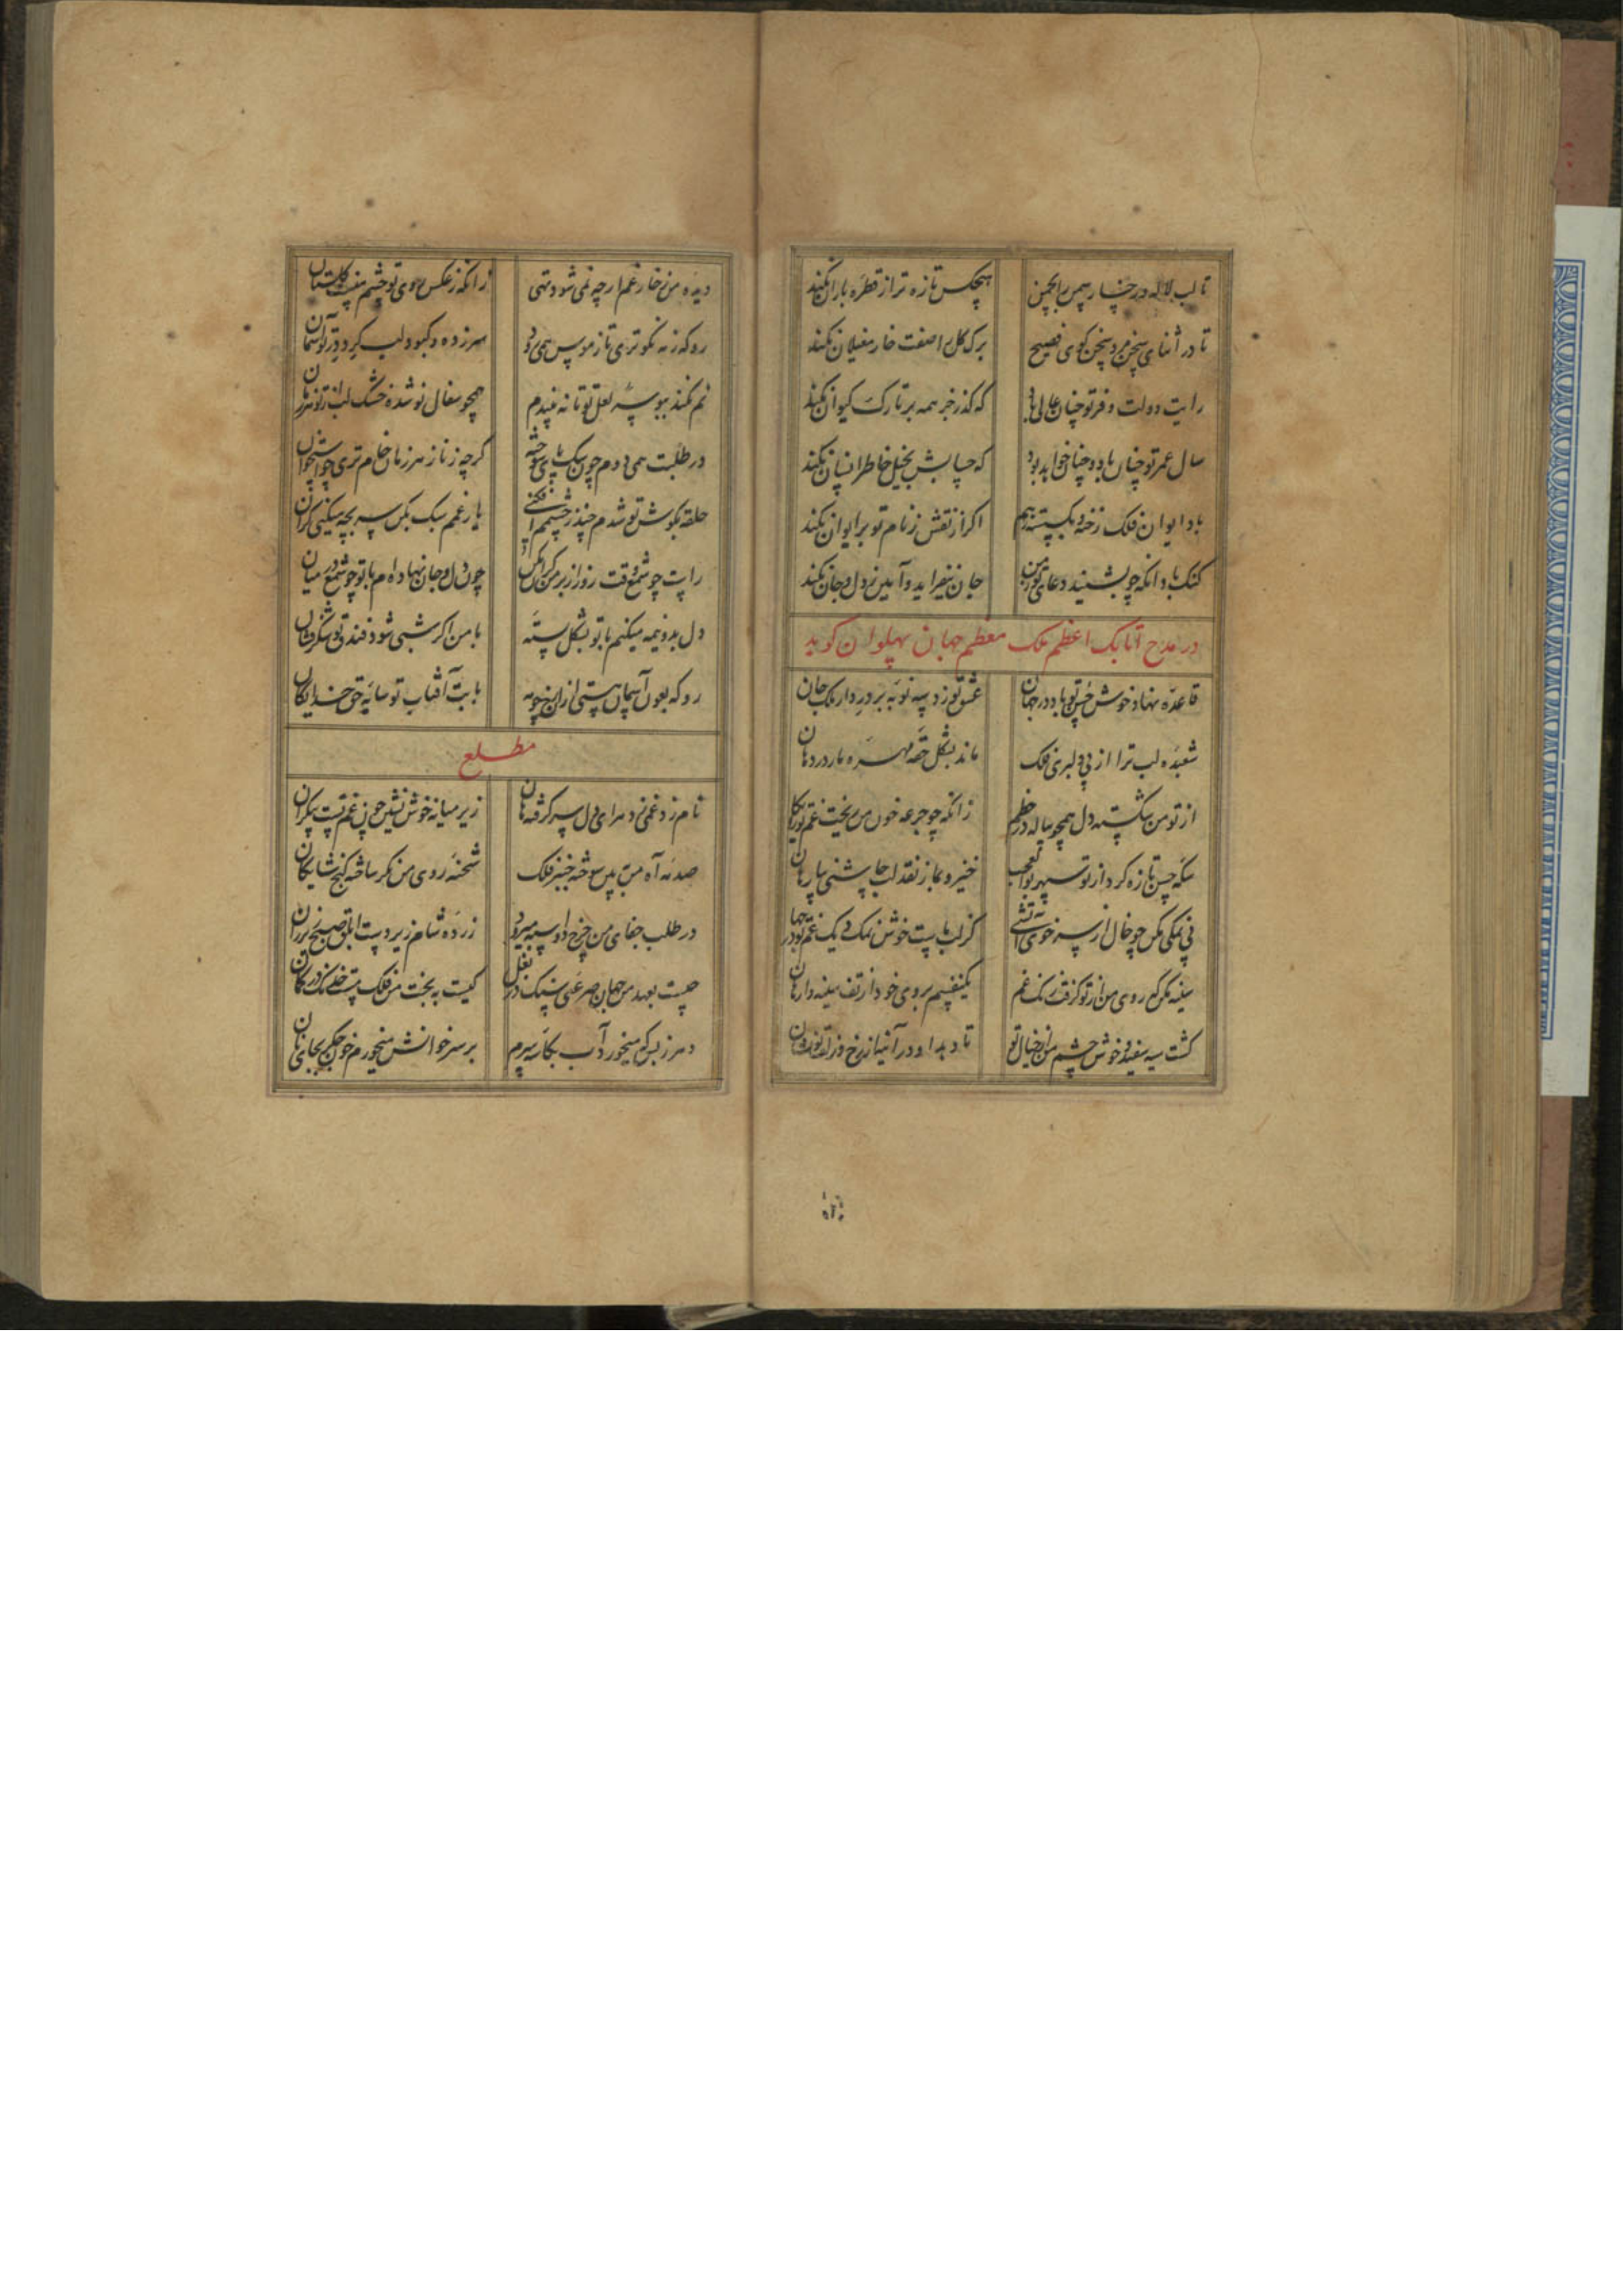 تا لب لاله و رخسار سمن را بچمن هیچکس تازه تر از قطره باران نکند
تا در اثنای سخن مرد سخن کوی فصیح برک کل را صفت خار مغیلان نکند
رایت دولت و فر تو چنان عالی باد که کذر جز همه بر تارک کیوان نکند
سال عمر تو چنان باد و چنان خواهد بود که حسابش بخیل خاطر انسان نکند
باد ایوان فلک رخنه و بکسسته ز هم اکر از نقش ز نام تو بر ایوان نکند
کنک باد انکه چو بشنید دعای تو ز من جان نیفزاید و آمین ز دل و جان نکند
در مدح اتابک اعظم ملک معظم جهان پهلوان کوید
قاعده نهاد خوش حسن تو باد در جهان عشق تو زد سه نوبه بر در دار ملک جان
شعبده لب ترا از پی دلبری فلک ماند بشکل حقه مهره مار در دهان
از تو من شکسته دل همچو پیاله در خطم زانکه چو جرعه خون من ریخت غم تو
سکه حسن تازه کرد از تو سپهر بوالعجب خیز و بیار نقد لب چاشنی
بی نمکی مکن چو خال از سر خوی آتشی کز لب پست خوش نمک یک غم تو در جهان
سینه مکن که روی من از تو کرفت رنک غم بر وی خود از تف سینه
کشت سیه سفید و خوش چشم من از خیال تو تا دید او در آینه از رخ و زلف تو نشان
دیده من ز خار غم ارچه نمی شود تهی زانکه ز عکس روی تو چشم منست کلستان
رو که ز مه نکوتری تا ز هوس همی رود سر زده و کبود لب کرد در تو آسمان
نم نکند ببوسه لعل تو تا نه بیندم همچو سفال نو شده خشک لب از تو هر زمان
در طلبت همی دوم چون سک پای سوخته کرچه ز ناز هر زمان خام تری چو استخوان
حلقه بکوش تو شدم چند ز چشمم افکنی بار غمم سبک بکن سر بچه میکنی کران
راست چو شمع وقت روز از بر من کران مکن چون دل و جان نهاده ام با تو چو شمع در میان
دل بدو نیمه میکنم با تو بشکل پسته با من اکر شبی شود فندق تو شکرفشان
رو که بعون آسمان هستی از این نمونه بابت آفتاب تو سایه حق خدایکان
مطلع
نام زد غمی دهم ای دل سر کرفته هان زیر میانه خوش نشین چون غم تست بیکران
صدمه آه من ببین سوخته خنجر فلک شحنه روی من نکر ساخته کنج شایکان
در طلب جفای من چرخ دو اسبه میرود زرده شام زیر دست ابلق صبح زیر ران
چیست بعهد من جهان صرعئی سنک در بغل کیست به بخت من فلک مست خدنک در کمان
دهر ز بس که میخورد آب بکاسه سرم بر سر خوانش میخورم خون جکر بجای نان